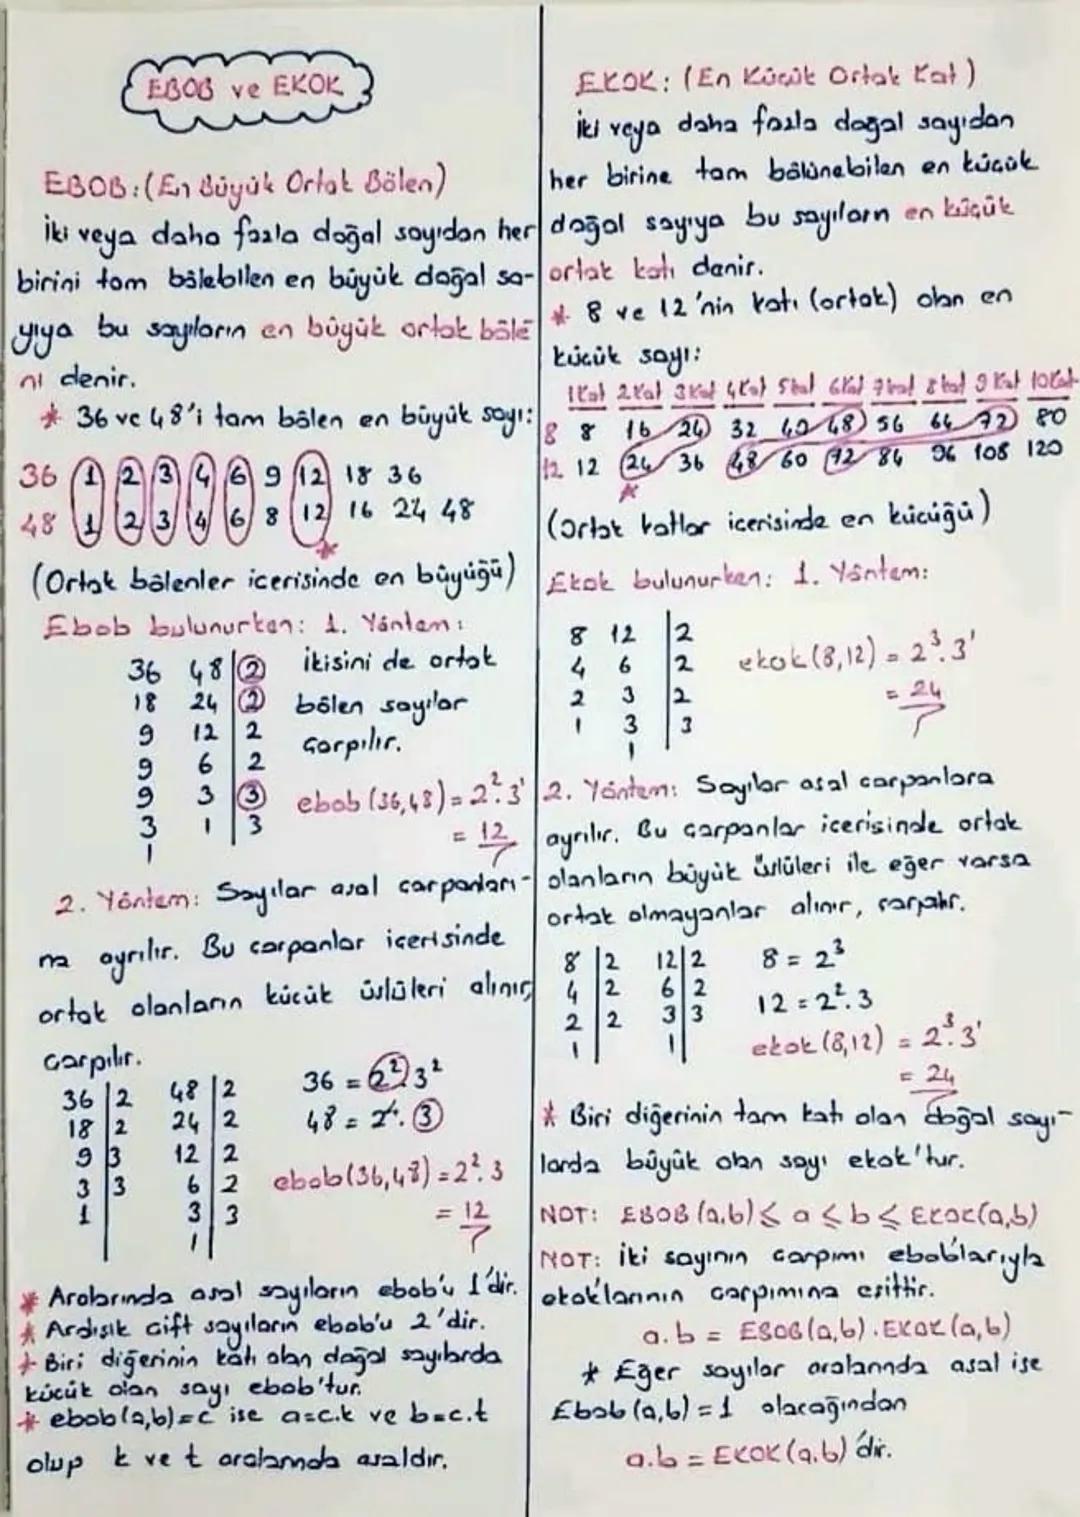 EBOB ve EKOK
EBOB: (En Büyük Ortak Bölen)
İki veya daha fazla doğal sayıdan her
birini tam bölebilen en büyük doğal sa-
yıya bu sayıların en büyük ortak böle
ni denir.
* 36 ve 48'i tam bölen en büyük sayı:
36 1 2 3 4 6 9 12 18 36
48 1 2 3 4 6 8 12 16 24 48
*
(Ortak bölenler içerisinde en büyüğü)
Ebob bulunurken: 1. Yöntem:
36 48 | 2 İkisini de ortak
18 24 | 2 bölen sayılar
9 12 | 2 çarpılır.
9 6 | 2
9 3 | 3 ebob (36,48) = 2².3¹
3 1 | 3 = 12
1
2. Yöntem: Sayılar asal çarpanları-
na ayrılır. Bu çarpanlar içerisinde
ortak olanların küçük üslüleri alınır,
çarpılır.
36 | 2 48 | 2 36 = 2².3²
18 | 2 24 | 2 48 = 2⁴.3
9 | 3 12 | 2
3 | 3 6 | 2 ebob(36,48) = 2².3
1 3 | 3 = 12
1
* Aralarında asal sayıların ebob'u 1'dir.
* Ardışık çift sayıların ebob'u 2'dir.
* Biri diğerinin katı olan doğal sayılarda
küçük olan sayı ebob'tur.
* ebob(a,b)=c ise a=c.k ve b=c.t
olup k ve t aralarında asaldır.
EKOK: (En Küçük Ortak Kat)
İki veya daha fazla doğal sayıdan
her birine tam bölünebilen en küçük
doğal sayıya bu sayıların en küçük
ortak katı denir.
* 8 ve 12'nin katı (ortak) olan en
küçük sayı:
1Kat 2Kat 3Kat 4Kat 5Kat 6Kat 7Kat 8Kat 9Kat 10Kat
8 8 16 24 32 40 48 56 64 72 80
12 12 24 36 48 60 72 84 96 108 120
*
(Ortak katlar içerisinde en küçüğü)
Ekok bulunurken: 1. Yöntem:
8 12 | 2
4 6 | 2 ekok(8,12) = 2³.3¹
2 3 | 2 = 24
1 3 | 3
1
2. Yöntem: Sayılar asal çarpanlara
ayrılır. Bu çarpanlar içerisinde ortak
olanların büyük üslüleri ile eğer varsa
ortak olmayanlar alınır, çarpılır.
8 | 2 12 | 2 8 = 2³
4 | 2 6 | 2 12 = 2².3
2 | 2 3 | 3 ekok (8,12) = 2³.3¹
1 1 = 24
* Biri diğerinin tam katı olan doğal sayı-
larda büyük olan sayı ekok'tur.
NOT: EBOB (a,b) ≤ a ≤ b ≤ EKOK(a,b)
NOT: İki sayının çarpımı ebob'larıyla
ekok'larının çarpımına eşittir.
a.b = EBOB(a,b).EKOK(a,b)
* Eğer sayılar aralarında asal ise
Ebob (a,b) = 1 olacağından
a.b = EKOK(a,b)'dir.